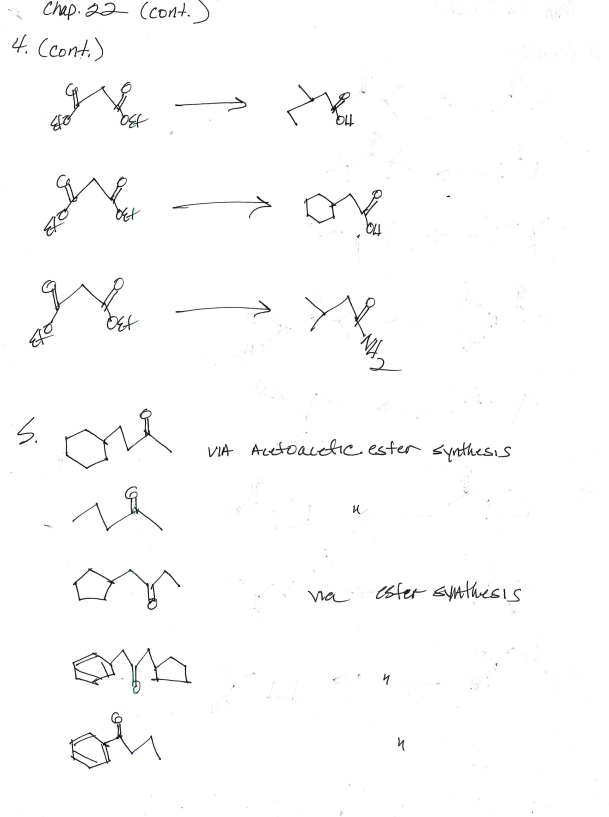 Chap. 22 (cont.)
4. (cont.)
O O
EtO OEt
O
OH
O O
EtO OEt
O
OH
O O
EtO OEt
O
NH2
5.
O
VIA Acetoacetic ester synthesis
O
"
O
via ester synthesis
O
"
O
"